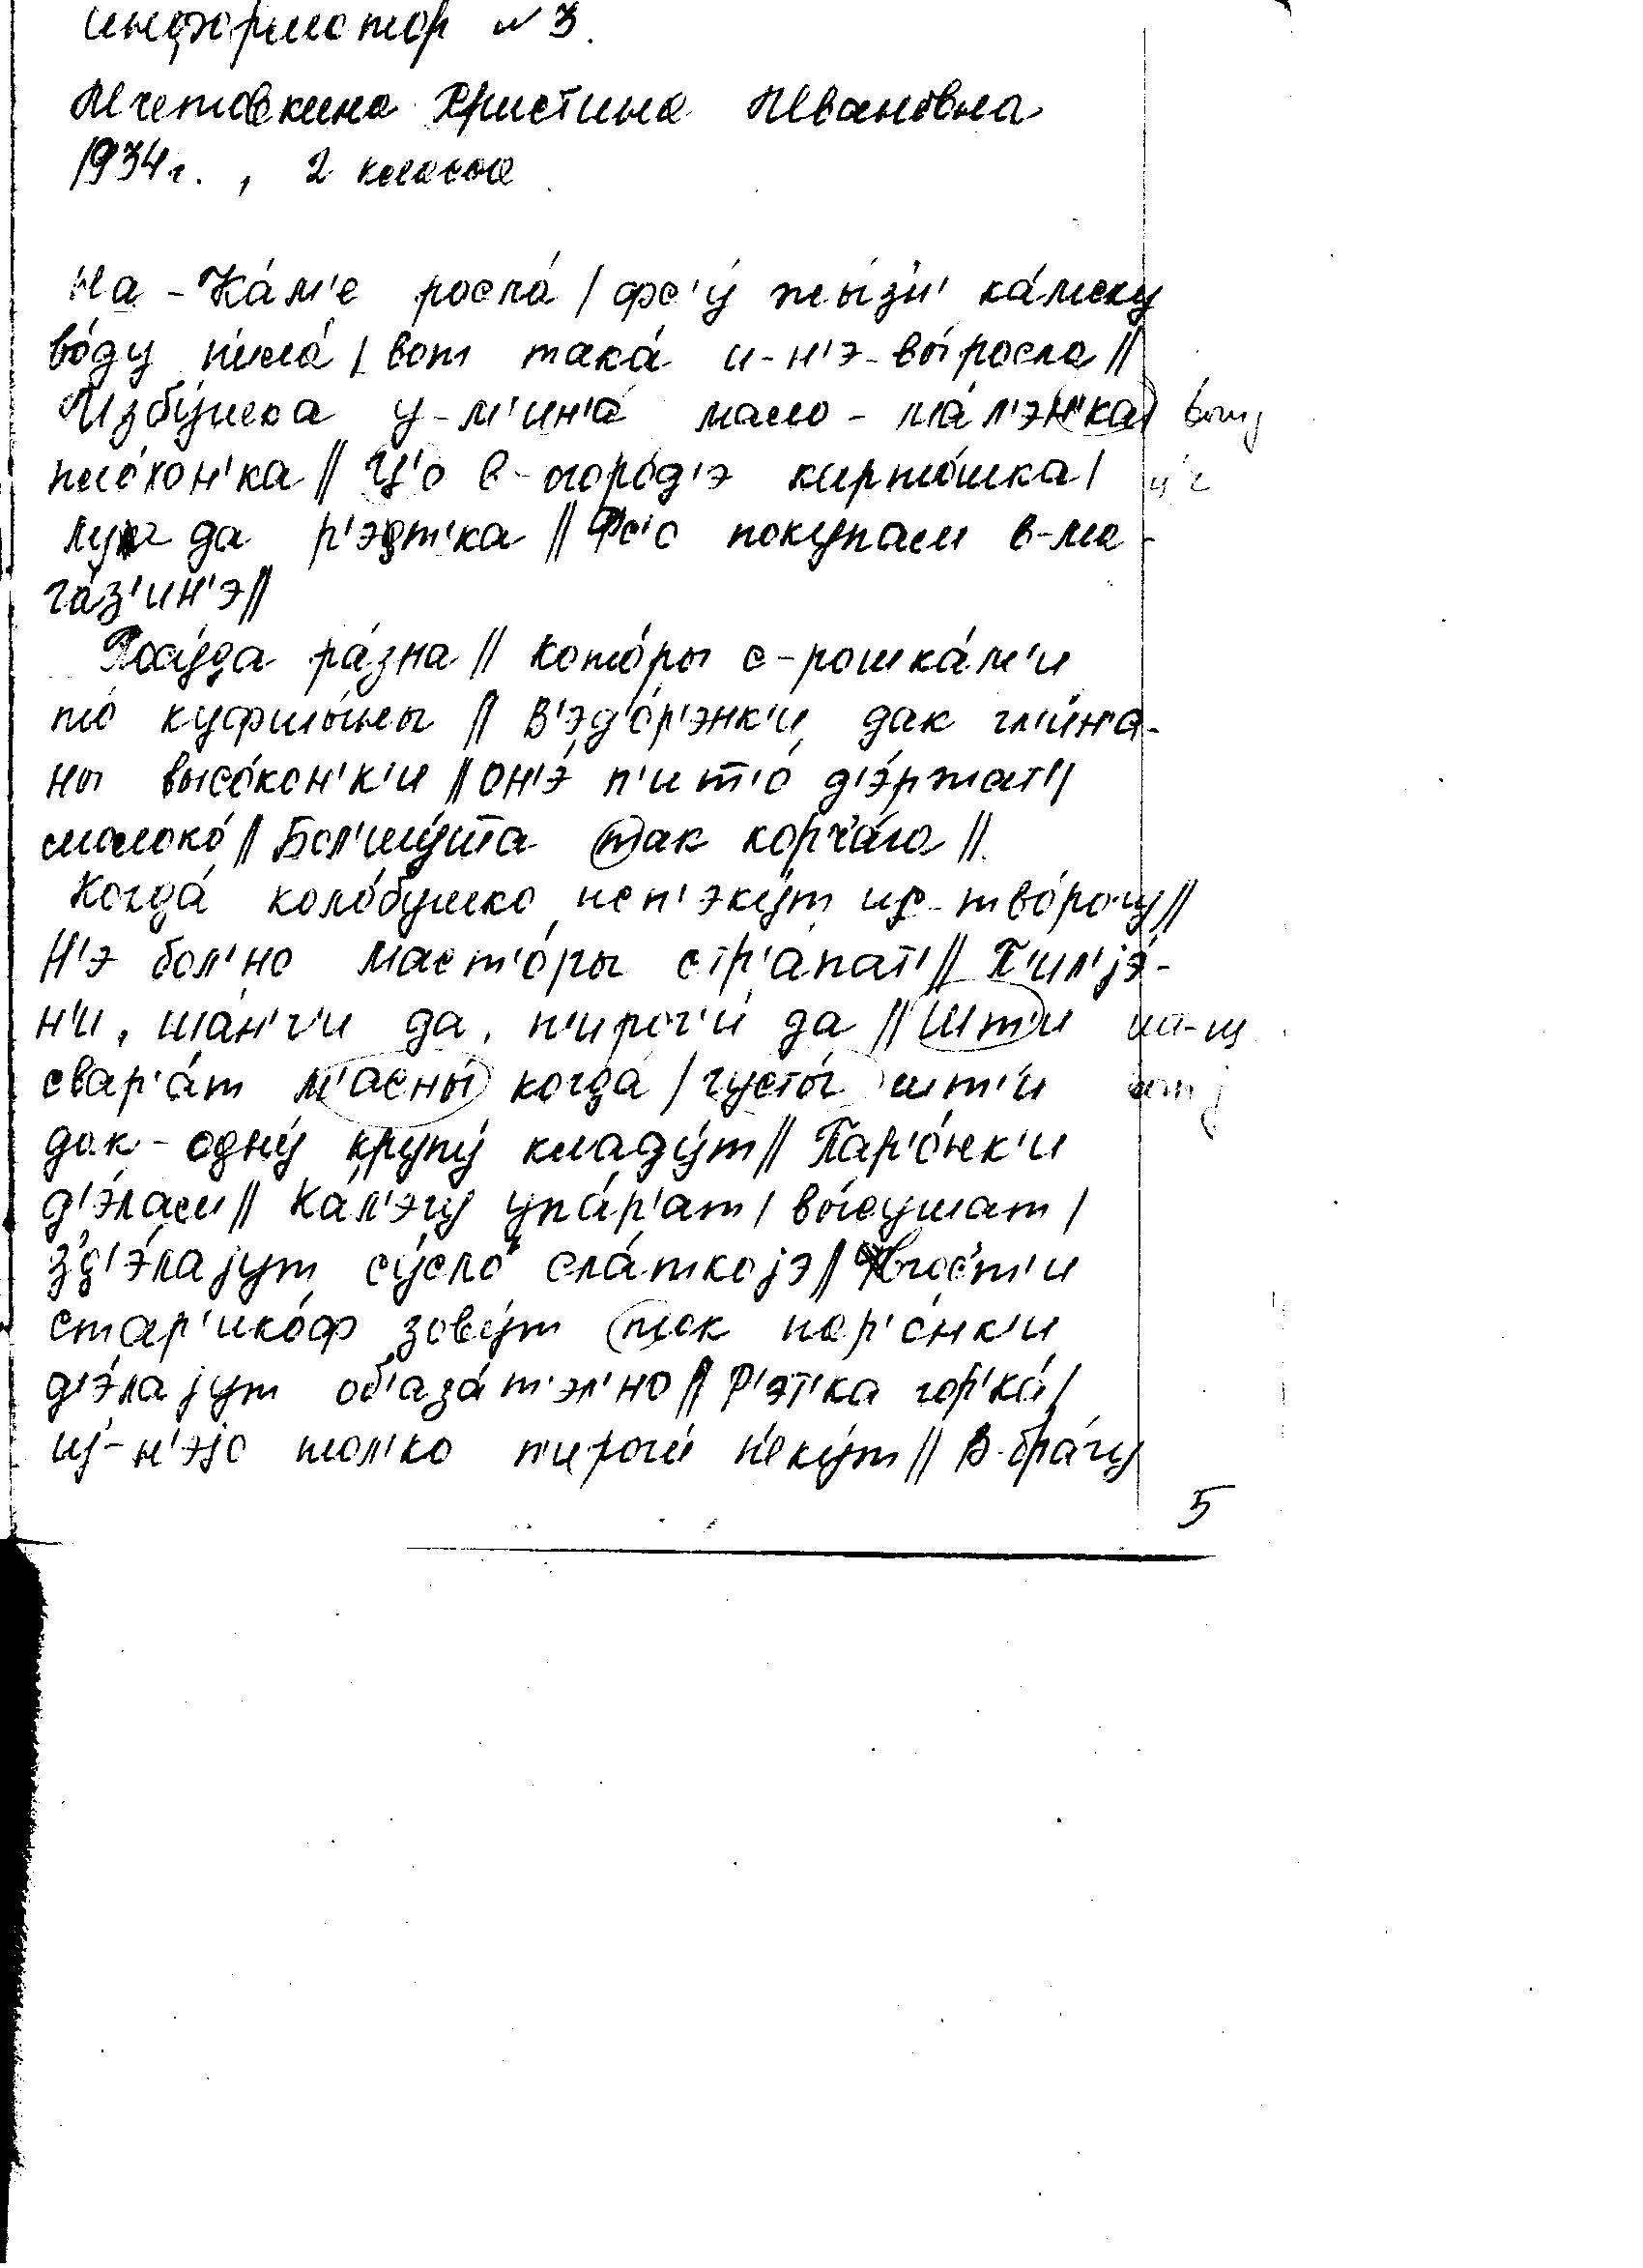 информатор №3.
Мчетовкина Христина Ивановна
1934г., 2 класса
На-Ка́м'е росла́ / фс'у́ жы́з'н' ка́мску
во́ду п'ила́ / вот така́ и-н'э-вы́росла //
Избу́шка у-м'ин'а́ мало-ма́л'эн'ка /
пло́хон'ка // Ц'о в-огоро́д'э карто́шка /
лук да р'э́т'ка // Фс'о покупаем в-ма-
га́з'ин'э //
Посу́да ра́зна // Кото́ры с-рошка́м'и
то куфшы́ны // В'эд'о́р'энк'и, дак гл'и́н'а-
ны высо́кон'к'и // он'э́ п'ит'о́ д'э́ржат' /
молоко́ // Бол'шу́шта так корч'а́га //
Когда́ коло́бушко исп'эку́т ис-тво́рогу //
Н'э бол'но маст'о́ры стр'а́пат' // П'ил'jэ́-
н'и, ша́н'г'и да, п'ирог'и́ да // Шт'и ш-щ
свар'а́т м'асны́ когда́ / густы́ шт'и
дак-одну́ крупу́ кладу́т // Пар'о́нк'и
д'э́лаем // Ка́л'эгу упа́р'ат / вы́сушат /
з'д'э́лаjут су́сло сла́ткоjэ // В гос'т'и
стар'ико́ф зову́т так пар'о́нк'и
д'э́лаjут об'аза́т'эл'но // Р'э́т'ка гор'ка́ /
из-н'эjо тол'ко п'ироги́ п'еку́т // В-бра́гу
5